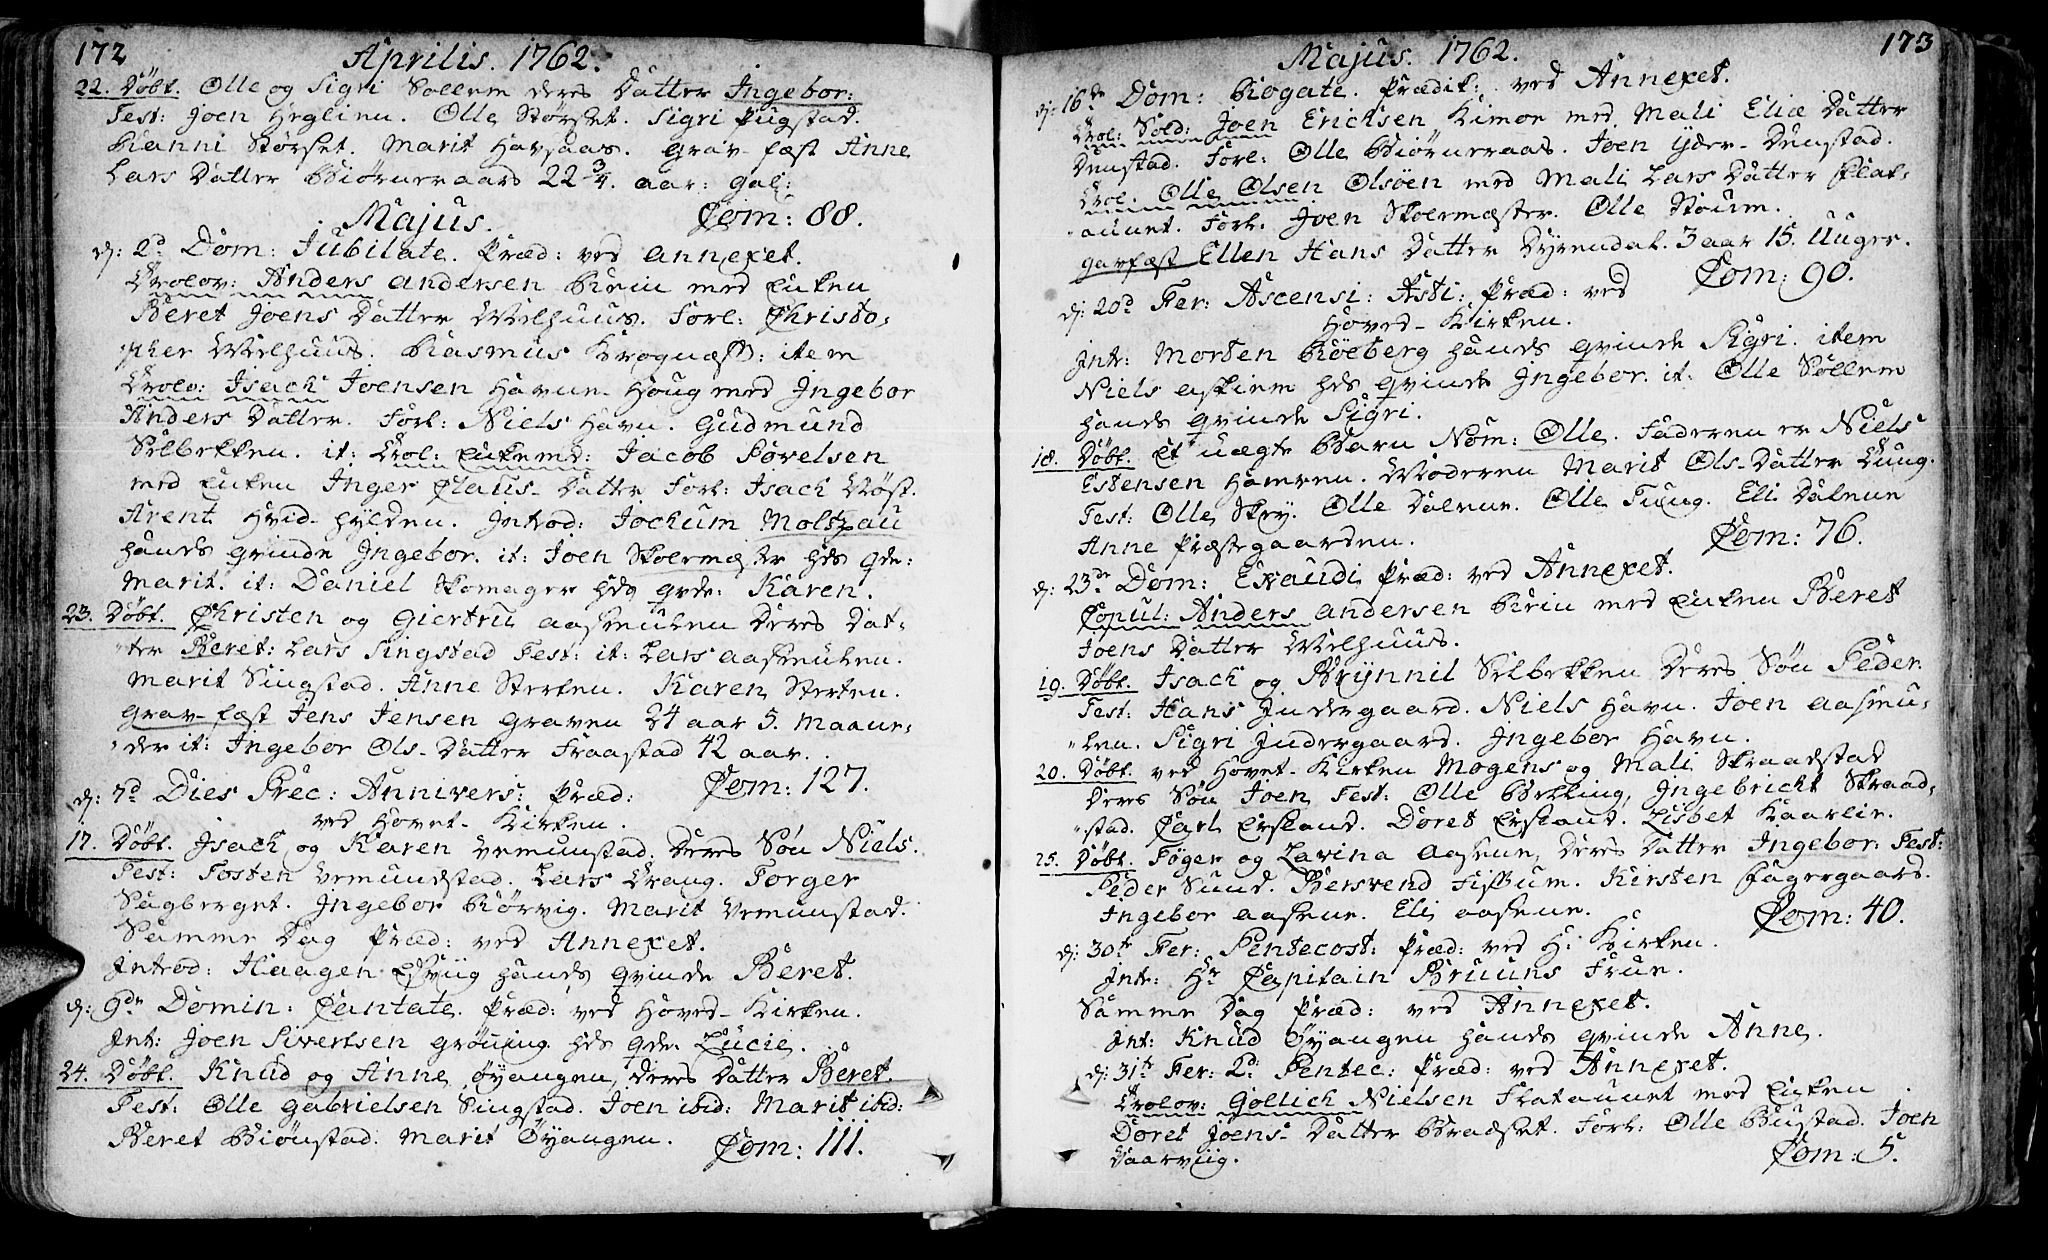 172 Aprilis. 1762.
22. Döbt. Olle og Sigri Sollem deres Datter Ingebor:
Test: Joen Heglinn. Olle Störset. Sigri Pugstad.
Ranni Störset. Marit Havsaas. Grav-fæst Anne
Lars Datter Biörneraars 22 3/4. aar: gal:
Majus. Com: 88.
d: 2d Dom: Jubilate. Præd: ved Annexet.
Trolov: Anders Andersen Krin med Enken
Beret Joens Datter Melhuus. Forl: Christo,
pher Melhuus. Rasmus Krognæss: item
Trolo: Isach Joensen Havne-Houg med Ingebor
Anders Datter. Forl: Niels Havn. Gudmund
Selbekken. it: Trol: Enkemd: Jacob Povelsen
med Enken Inger Claus-Datter Forl: Isach Möst.
Arent Hvid-hylden. Introd: Jochum Moltzau
hands qvinde Ingebor. it: Joen Skoermæster hds qde:
Marit. it: Daniel Skomager hds qvde: Karen.
23. Döbt. Christen og Giertru Aasmulen Deres Dat,
ter Beret: Lars Singstad Test: it: Lars Aasmulen.
Marit Singstad. Anne Sterten. Karen Sterten.
Grav-fæst Jens Jensen Graven 24 aar 5. Maane,
der it: Ingebor Ols-Datter Fraastad 42 aar.
d: 7d Dies Prec: Annivers: Præd: Com: 127.
ved Hovet-Kirken.
17. Döbt. Isach og Karen Vemunstad. Deres Sön Niels.
Test: Tosten Vemundstad. Lars Trang. Torger
Sagberget. Ingebor Körvig. Marit Vemunstad.
Samme Dag Præd: ved Annexet.
Introd: Haagen Esviig hands qvinde Beret.
d: 9de Domin: Cantate. Præd: ved Hoved-Kirken.
Int: Joen Sivertsen Gröning hds qde. Lucie.
24. Döbt. Knud og Anne Öyangen, deres Datter Beret.
Test: Olle Gabrielsen Singstad. Joen ibid: Marit ibid:
Beret Biönstad. Marit Öyangen. Com: 111.
Majus. 1762. 173
d: 16de Dom: Rogate. Prædik: ved Annexet.
Trol: Sold: Joen Erichsen Kimoe med Mali Eliæ Datter
Denstad. Forl: Olle Biörneraas. Joen Yder-Denstad.
Trol. Olle Olsen Olsöen med Mali Lars Datter Flat,
aunet. Forl: Joen Skoermæster. Olle Stourm.
gravfæst Ellen Hans Datter Dyrendal. 3 aar 15. Uuger.
d: 20d Fer: Ascensi: Xsti: Præd: ved Com: 90.
Hoved-Kirken.
Int: Morten Röeberg hands qvinde Sigri. item
Niels Eskiem hds qvinde Ingebor. it: Olle Söllem
hands qvinde Sigri.
18. Döbt. Et uægte Barn Nom: Olle. Faderen er Niels
Estensen Hamren. Moderen Marit Ols-Datter Tung.
Test: Olle Skey. Olle Dalene. Olle Tung. Eli Dalene
Anne Præstegaarden. Com: 76.
d: 23de Dom: Exaudi, Præd: ved Annexet.
Copul: Anders Andersen Krin med Enken Beret
Joens Datter Melhuus.
19. Döbt. Isach og Brynnil Selbekken Deres Sön Peder.
Test: Hans Indergaard. Niels Havn. Joen Aasmu,
len. Sigri Indergaard. Ingebor Havn.
20. Döbt. ved Hovet-Kirken Mogens og Mali Skraadstad
Deres Sön Joen Test: Olle Bekking, Ingebricht Skraad,
stad. Carl Ersland. Doret Ersland. Lisbet Kaarlie.
25. Döbt. Föger og Lavina Aasene, deres Datter Ingebor. Test:
Peder Sund. Bersvend Fissum. Kirsten Fagergaard.
Ingebor Aasene. Eli Aasene. Com: 40.
d: 30te Fer: Pentecost: Præd: ved H: Kirken.
Int: Hr Capitain Bruuns Frue.
Samme Dag Præd: ved Annexet.
Int: Knud Öyangen hands qvinde Anne.
d: 31te Fer: 2d: Pentec: Præd: ved Annexet.
Trolov: Gollich Nielsen Flataunet med Enken
Doret Joens-Datter Bradset. Forl: Olle Bustad. Joen
Vaarviig. Com: 5.